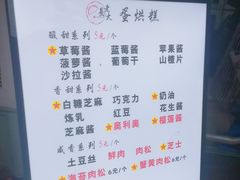 蛋烘糕
酸甜系列 5元/个
★草莓酱 蓝莓酱 苹果酱
菠萝酱 葡萄干 山楂片
沙拉酱
香甜系列 5元/个
★白糖芝麻 巧克力 ★奶油
炼乳 红豆 花生酱
芝麻酱 ★奥利奥 ★榴莲酱
咸香系列 5元/个
土豆丝 鲜肉 肉松 ★芝士
★海苔肉松 6元/个 ★蟹黄肉松 6元/个